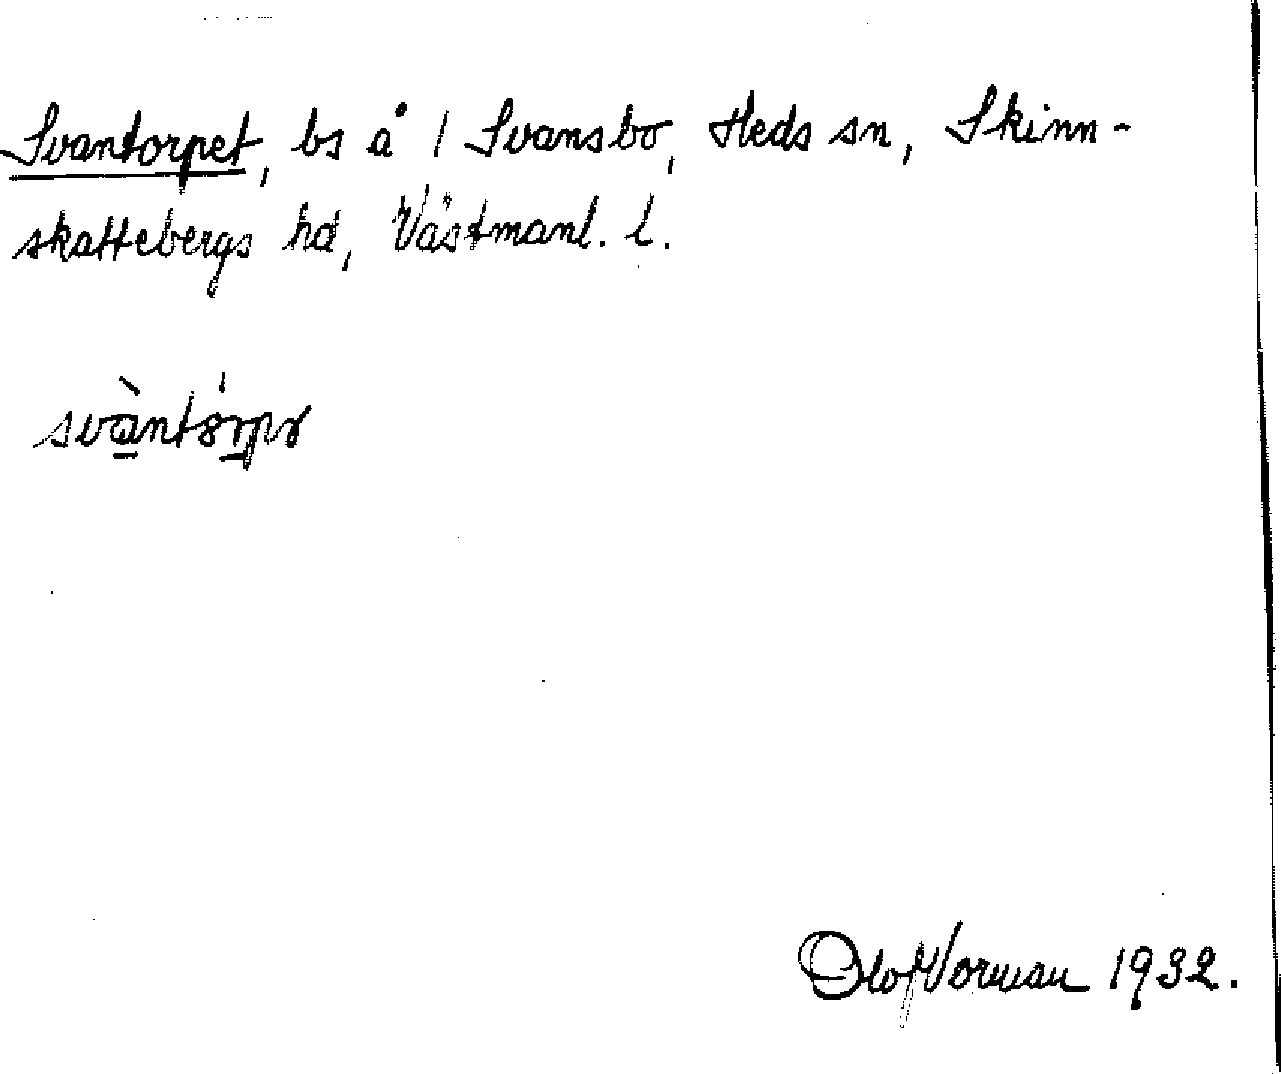 Svantorpet, bs å 1 Svansbo, Heds sn, Skinn-
skattebergs hd, Västmanl. l.
Olof Norman 1932.